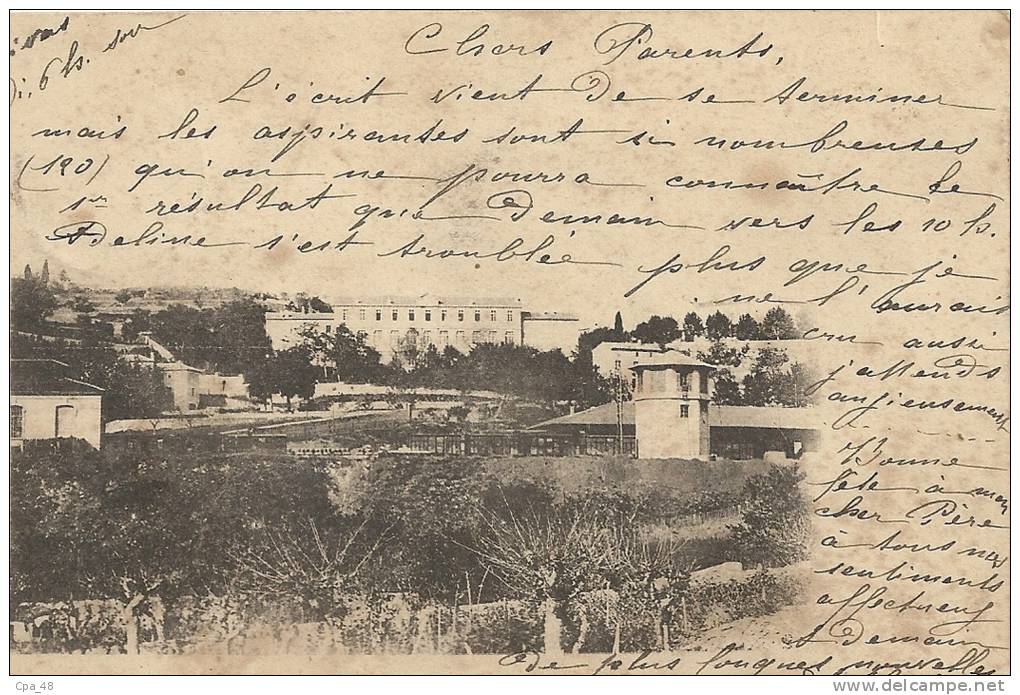 6 h. soir
Chers Parents,
L'écrit vient de se terminer
mais les aspirantes sont si nombreuses
(120) qu'on ne pourra connaître le
1er résultat que demain vers les 10 h.
Adeline s'est troublée plus que je
ne l'aurais
cru aussi
j'attends
anxieusement
Bonne
fête à mon
cher Père
à tous mes
sentiments
affectueux
A demain
de plus longues nouvelles
Cpa_48
www.delcampe.net